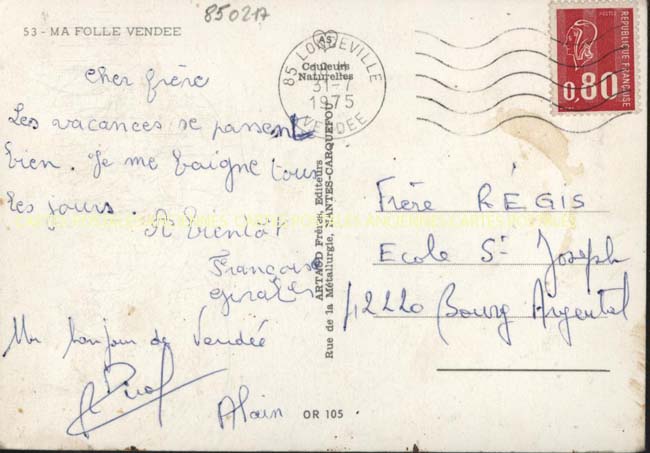 850217
53 - MA FOLLE VENDEE
Cher frère
Les vacances se passent
bien. Je me baigne tous
les jours.
A bientôt
François
Un bonjour de Vendée
Alain
AS
Couleurs
Naturelles
ARTAUD Frères, Editeurs
Rue de la Métallurgie, NANTES-CARQUEFOU
OR 105
85 LONGEVILLE
31-7
1975
VENDEE
REPUBLIQUE FRANÇAISE
POSTES
0,80
Frère RÉGIS
Ecole St Joseph
42220 Bourg Argental